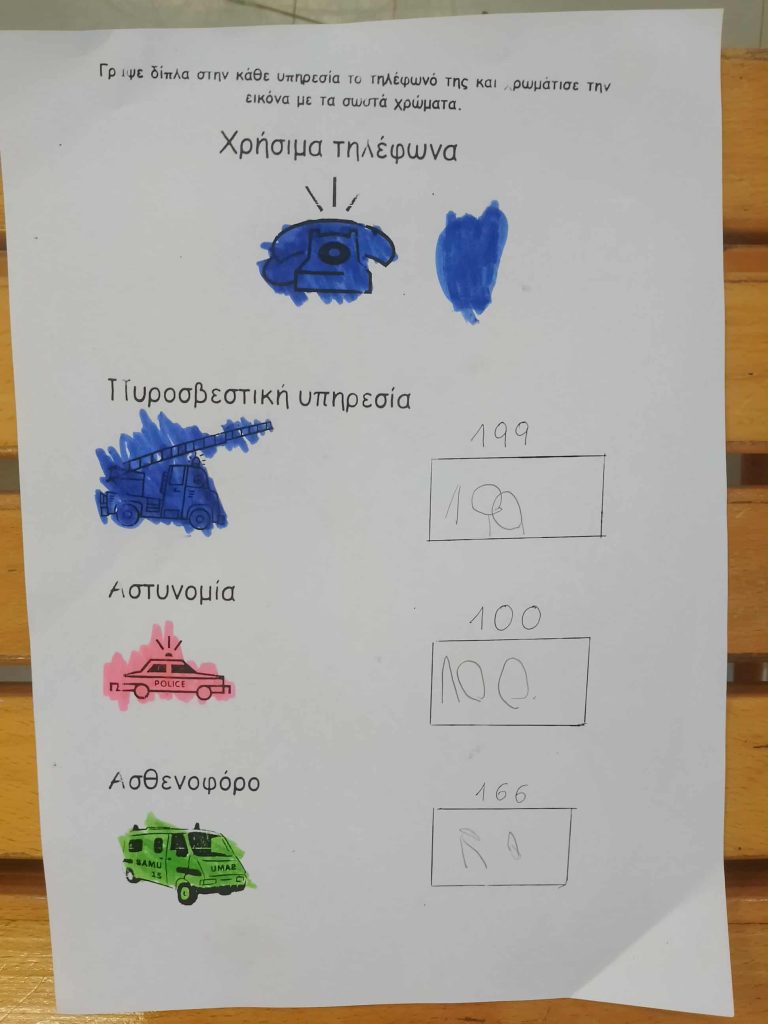 Γράψε δίπλα στην κάθε υπηρεσία το τηλέφωνό της και χρωμάτισε την
εικόνα με τα σωστά χρώματα.
Χρήσιμα τηλέφωνα
Πυροσβεστική υπηρεσία
199
199
Αστυνομία
100
POLICE
100
Ασθενοφόρο
166
SAMU
15
UMAS